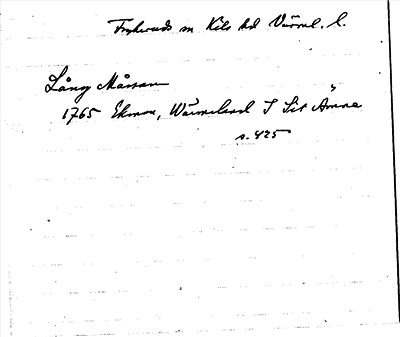 Frykeruds sn Kils hd Värml. l.
Lång Måssan
1765 Ekman, Wärmeland I Sit Ämne
s. 425